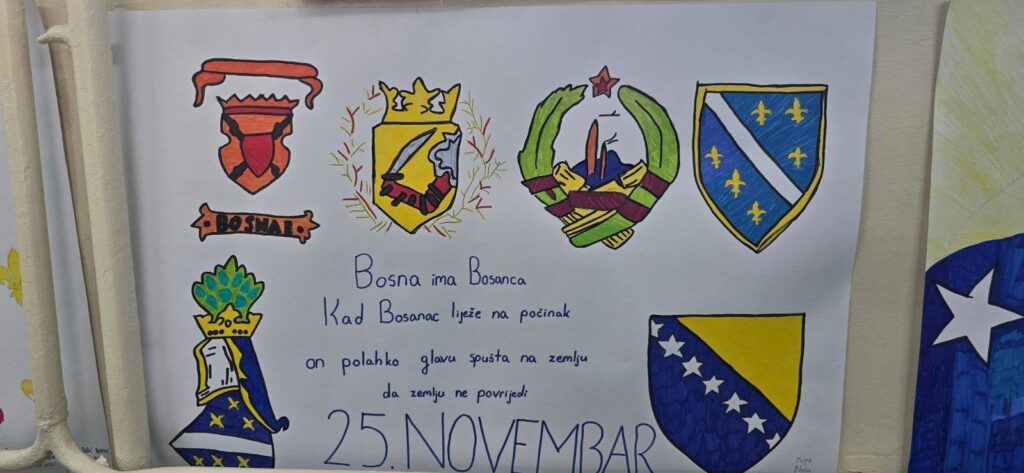 BOSNAE
Bosna ima Bosanca
Kad Bosanac liježe na počinak
on polahko glavu spušta na zemlju
da zemlju ne povrijedi
25. NOVEMBAR